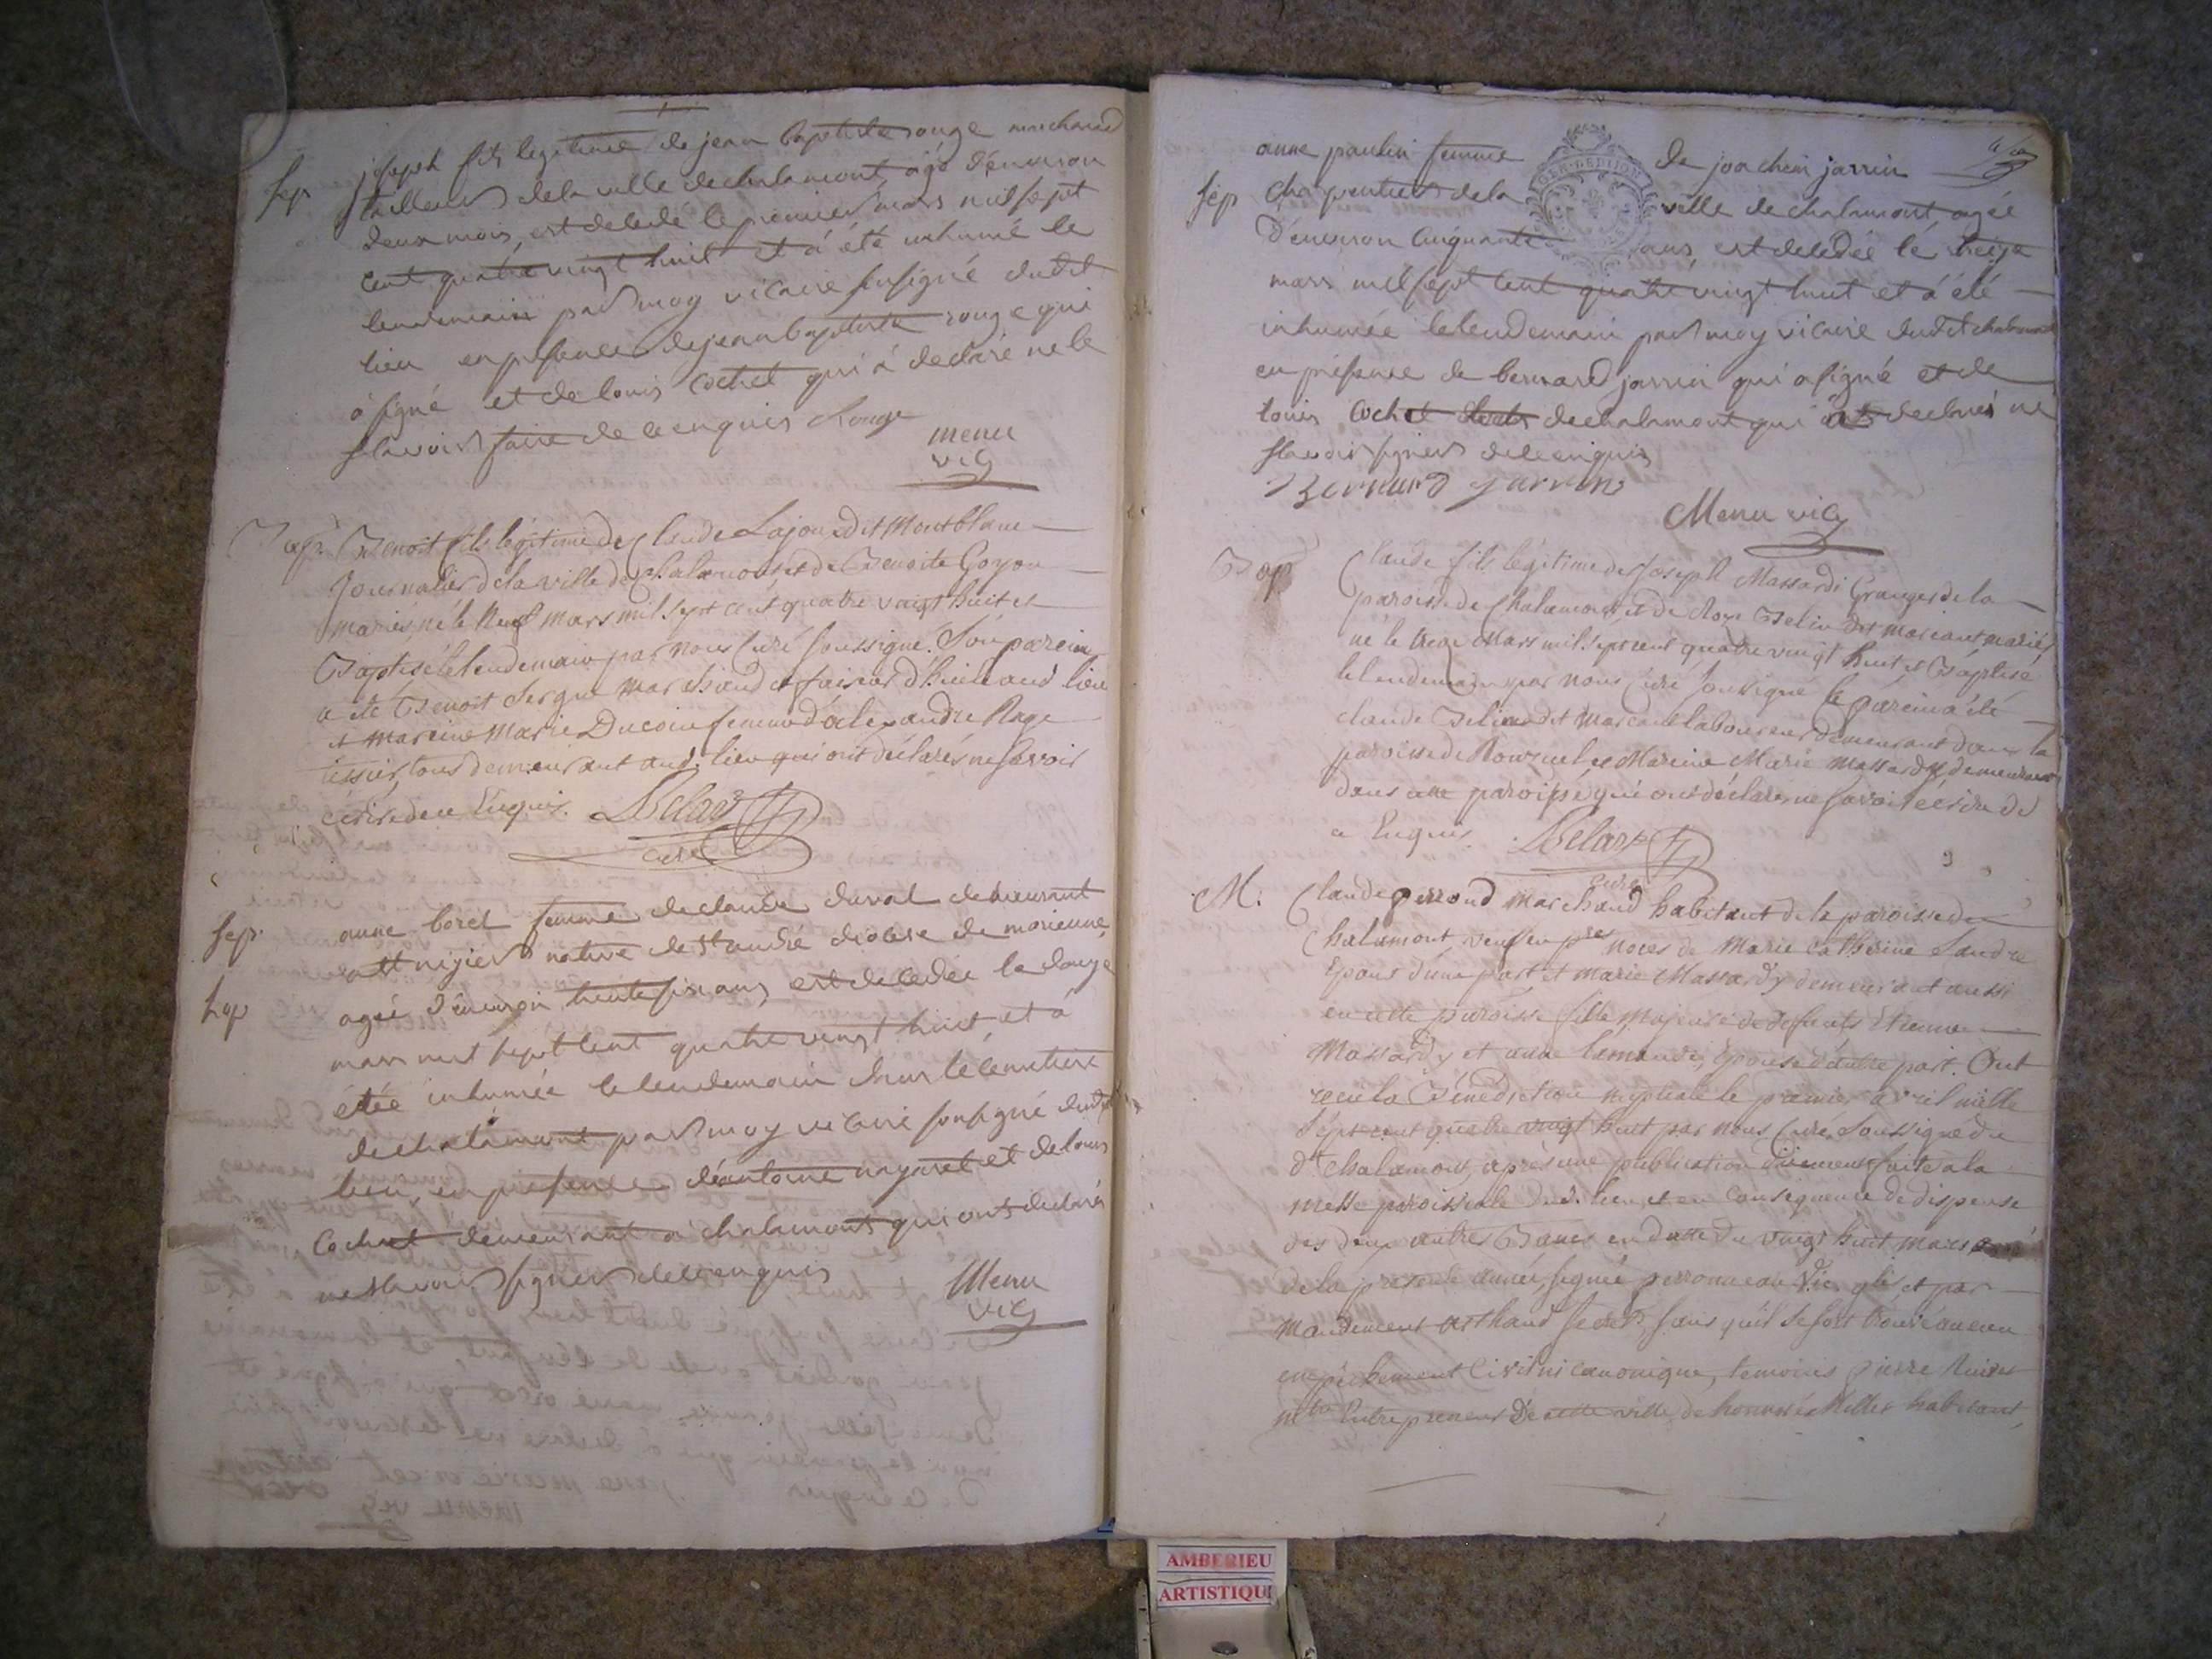 Sep. joseph fils legitime de jean baptiste rouge marchand
tailleur de la ville de chalamont, agé d'environ
deux mois, est decedé le premier mars mil sept
cent quatre vingt huit et a été inhumé le
lendemain par moy vicaire sousigné dudit
lieu en presence de jean baptiste rouge qui
a signé et de louis cochet qui a declaré ne le
sçavoir faire de ce enquis Rouge
menu
vic
Bap. Benoit fils légitime de Claude Lajoue dit Montblanc
Journalier de la ville de Chalamont et de Benoite Goyon
mariés, né le Neuf mars mil sept cent quatre vingt huit et
Baptisé le lendemain par nous Curé soussigné. Son parein
a été Benoit marchand et faiseur d'huile aud. lieu
et mareine Marie Ducoin femme d'alexandre Rage
tessier, tous demeurant aud. lieu qui ont déclarés ne savoir
écrire de ce Enquis.
curé
Sep. anne boret femme de claude duval demeurant
native de St andré diocese de morienne,
hop agée d'environ trente six ans, est decedée le douze
mars mil sept cent quatre vingt huit, et a
étée inhumée le lendemain dans le cemetiere
de chalamont par moy vicaire sousigné dudit
lieu, en presence d'antoine nayaret et de louis
Cochet demeurant a chalamont qui ont declaré
ne sçavoir signer de ce enquis
Menu
vic
anne paulin femme de joachin jarrin
Sep. Charpentier de la ville de chalamont, agée
d'environ cinquante ans, est decedée le treize
mars mil sept cent quatre vingt huit et a été
inhumée le lendemain par moy vicaire dudit chalamont
en présence de bernard jarrin qui a signé et de
louis Cochet de chalamont qui a declaré ne
sçavoir signer de ce enquis
Bernard jarrin
Menu vic
Bap. Claude fils légitime de Joseph Massardi Granger de la
paroisse de Chalamont et de Belin dit marcant mariés
né le treze Mars mil sept cent quatre vingt huit et Baptisé
le lendemain par nous Curé soussigné le parein a été
claude Belin dit Marcant laboureur demeurant dans la
paroisse de et Mareine Marie Massardy demeurant
dans cette paroisse qui ont déclarés ne savoir écrire de
ce Enquis.
curé
M. Claude perroud marchand habitant de la paroisse de
Chalamont, veuf en pres noces de Marie catherine Landre
Epoux d'une part et Marie Massardy demeurant aussi
en cette paroisse fille majeure de defunts Etienne
Massardy et anne Epouse d'autre part. Ont
recu la Bénédiction nuptiale le premier avril mille
sept cent quatre vingt huit par nous Curé Soussigné du
dt Chalamont, après une publication duement faite a la
messe paroissiale dud. lieu, et en Conséquence de dispense
des deux autres Bancs en datte du vingt huit mars
de la presente année, signée perronneau Vic. gl. et par
mandement arthaud secret. sans qu'il se soit trouvé aucun
empêchement Civil ni canonique, temoins pierre
Entrepreneur de cette ville, de habitant